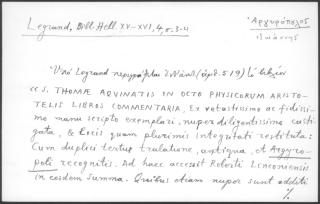 Legrand, Bibl. Hell. XV-XVI, 4, σ. 3-4
Ἀργυρόπουλος
Ἰωάννης
Ὑπὸ Legrand περιγράφεται (ἀριθ. 519) τὸ βιβλίον
«S. THOMAE AQVINATIS IN OCTO PHYSICORUM ARISTO-
TELIS LIBROS COMMENTARIA, Ex vetustissimo ac fidissi-
mo manu scripto exemplari, nuper diligentissime casti-
gata, & locis quam plurimis integritati restituta:
Cum duplici textus tralatione, antiqua, et Argyro-
poli recognitis. Ad haec accessit Roberti Linconiensis
in eosdem summa. Quibus etiam nuper sunt additi
%